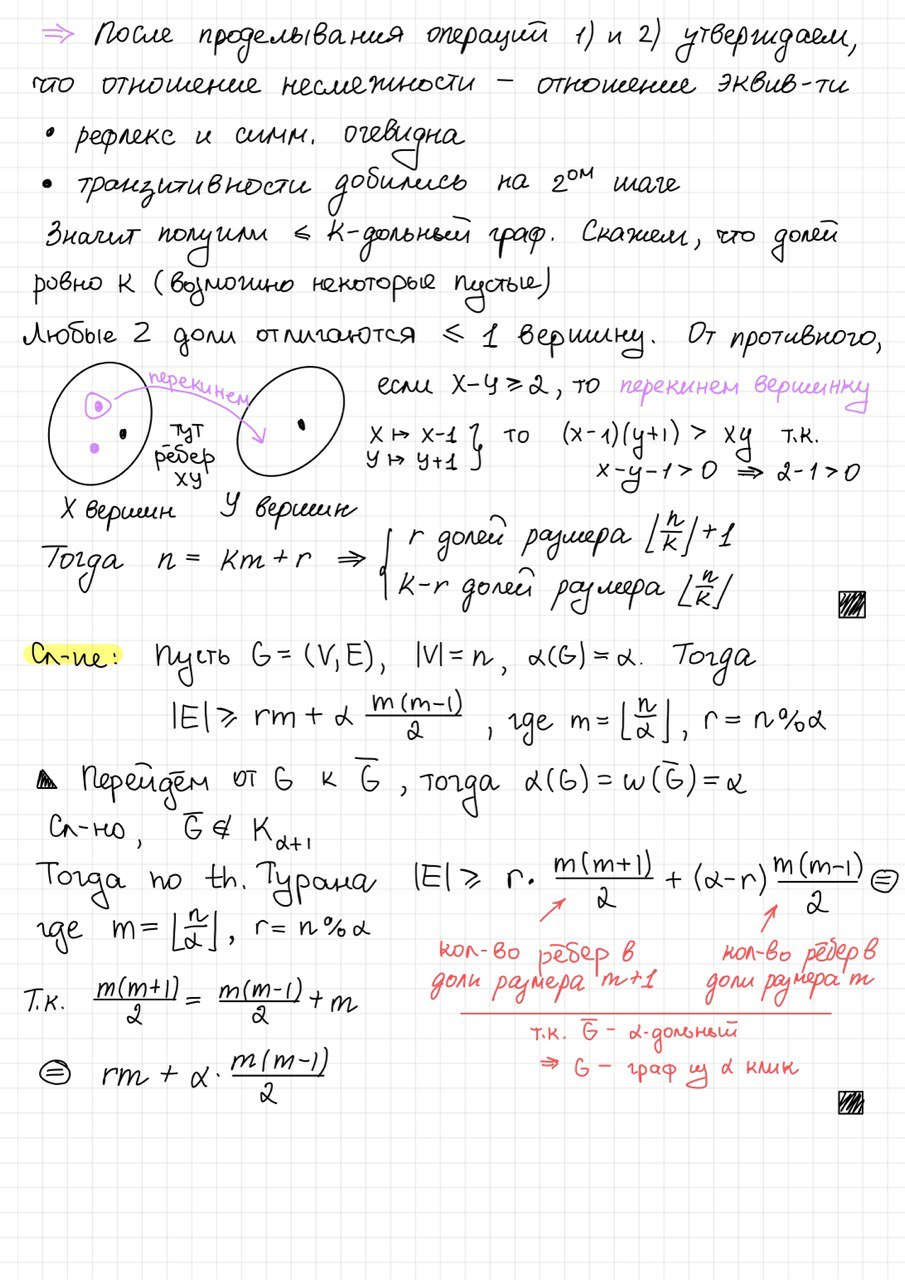 ⇒ После проделывания операций 1) и 2) утверждаем,
что отношение несмежности – отношение эквив-ти
• рефлекс и симм. очевидна
• транзитивности добились на 2ом шаге
Значит получили ≤ K-дольный граф. Скажем, что долей
ровно K (возможно некоторые пустые)
Любые 2 доли отличаются ≤ 1 вершину. От противного,
если x-y ≥ 2, то перекинем вершинку
перекинем
тут рёбер xy
x ↦ x-1
y ↦ y+1
} то (x-1)(y+1) > xy т.к.
x-y-1 > 0 ⇒ 2-1 > 0
X вершин У вершин
Тогда n = km + r ⇒ { r долей размера ⌊n/k⌋ + 1
k-r долей размера ⌊n/k⌋
Сл-ие: Пусть G = (V, E), |V| = n, α(G) = α. Тогда
|E| ≥ rm + α m(m-1)/2 , где m = ⌊n/α⌋, r = n % α
▲ Перейдём от G к G̅, тогда α(G) = ω(G̅) = α
Сл-но, G̅ ∉ K_{α+1}
Тогда по th. Турана |E| ≥ r · m(m+1)/2 + (α-r) m(m-1)/2 ⊜
где m = ⌊n/α⌋, r = n % α
кол-во рёбер в
доли размера m+1
кол-во рёбер в
доли размера m
Т.к. m(m+1)/2 = m(m-1)/2 + m
т.к. G̅ – α-дольный
⇒ G – граф из α клик
⊜ rm + α · m(m-1)/2